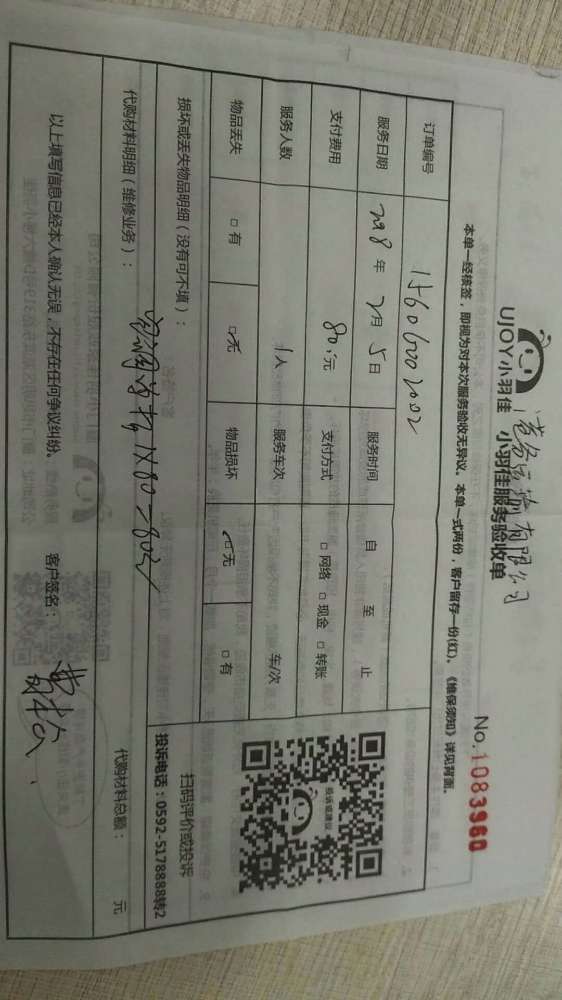 UJOY小羽佳 小羽佳服务验收单
No.1083960
本单一经核签，即视为对本次服务验收无异议。本单一式两份，客户留存一份(红)。《维保须知》详见背面。
订单编号 15606002002
服务日期 2018年2月5日 服务时间 自 至 止
支付费用 80.元 支付方式 □网络 □现金 □转账
服务人数 1人 服务车次 车/次
物品丢失 □有 □无 物品损坏 □无 □有
损坏或丢失物品明细（没有可不填）：
投诉或建议
扫码评价或投诉
投诉电话：0592-5178888转2
代购材料明细（维修业务）： 1×80=80元
代购材料总额： 元
以上填写信息已经本人确认无误，不存在任何争议纠纷。 客户签名：